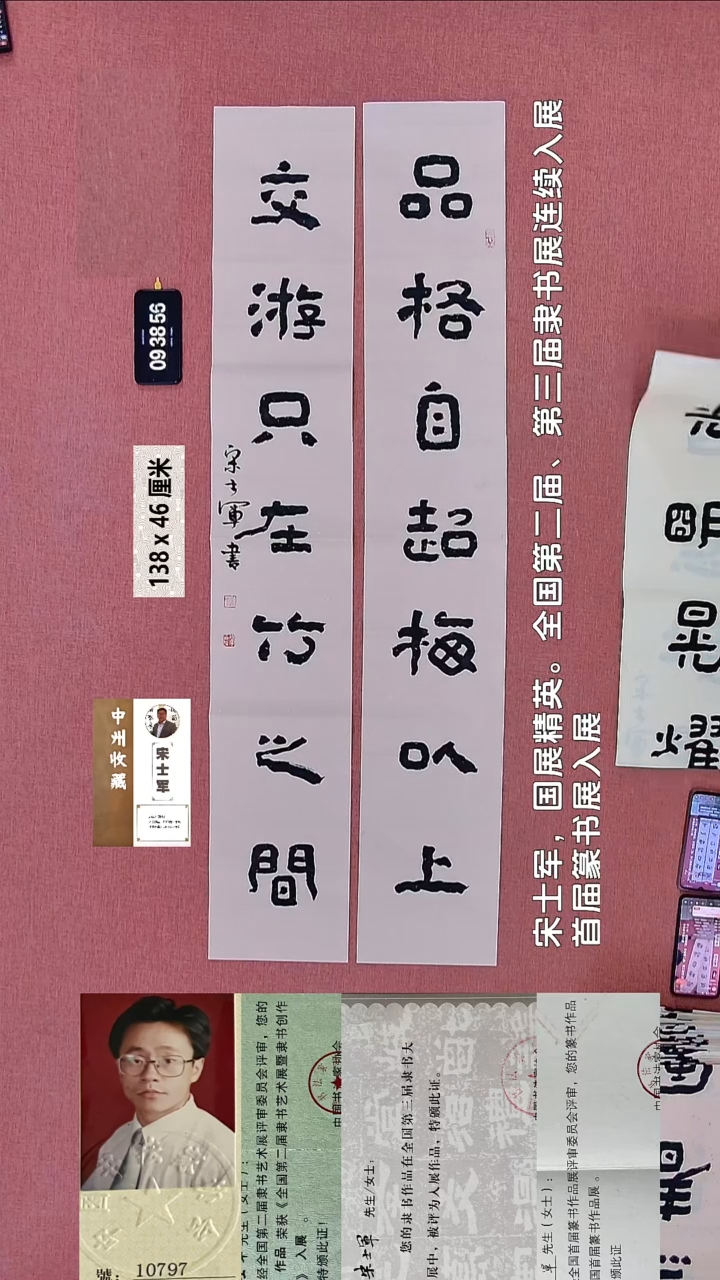 品格自超梅以上
交游只在竹之間
宋士軍書
093856
138 x 46 厘米
宋士軍
宋士军，国展精英。全国第二届、第三届隶书展连续入展
首届篆书展入展
先生（女士）：
经全国第二届隶书艺术展评审委员会评审，您的
作品 荣获《全国第二届隶书艺术展暨隶书创作
》入展 。
特颁此证！
10797
宋士軍 先生/女士：
您的隶书作品在全国第三届隶书大
展中，被评为入展作品，特颁此证。
先生（女士）：
全国首届篆书作品展评审委员会评审，您的篆书作品
全国首届篆书作品展 。
颁此证